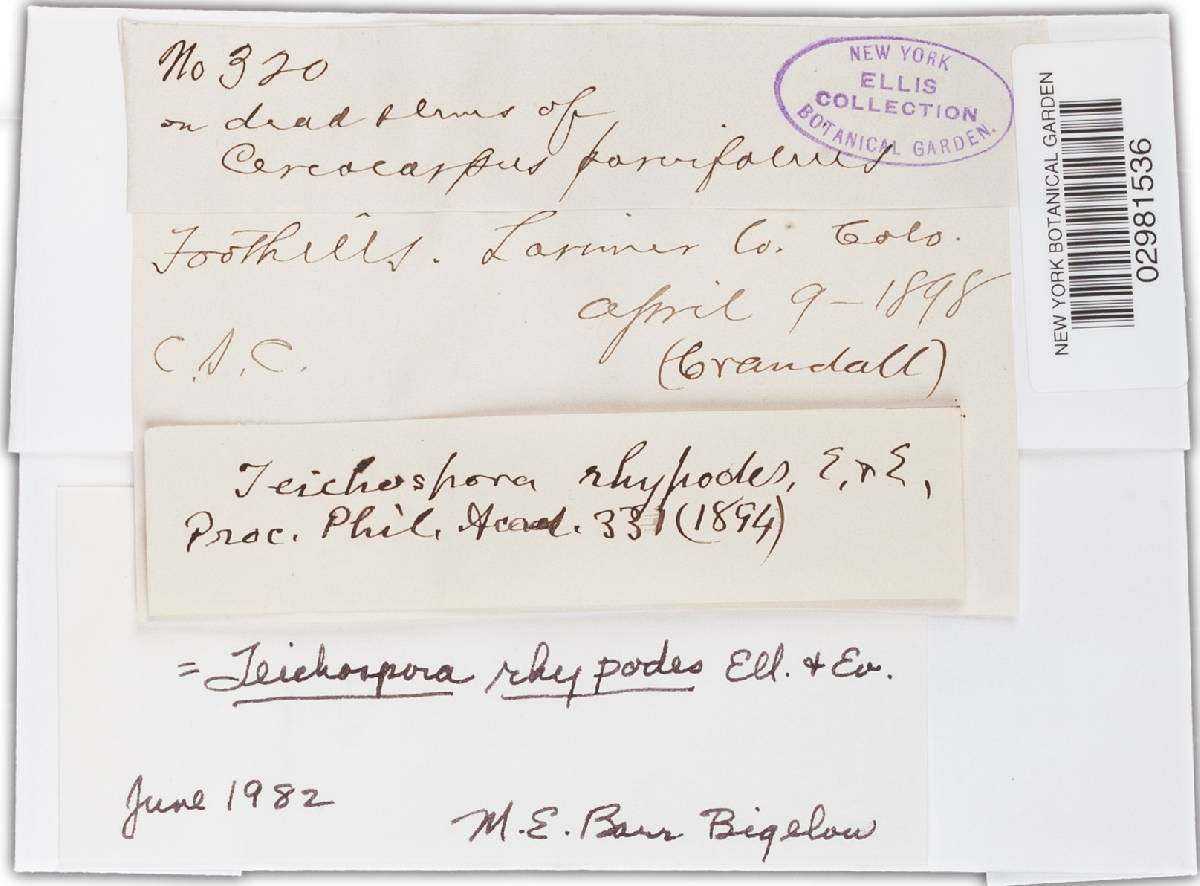 No 320
on dead stems of
Cercocarpus parvifolius
NEW YORK
ELLIS
COLLECTION
BOTANICAL GARDEN.
NEW YORK BOTANICAL GARDEN
02981536
Foothills. Larimer Co. Colo.
April 9-1898
C.S.C. (Crandall)
Teichospora rhypodes, E. & E,
Proc. Phil. Acad. 331 (1894)
= Teichospora rhypodes Ell. & Ev.
June 1982
M.E. Barr Bigelow